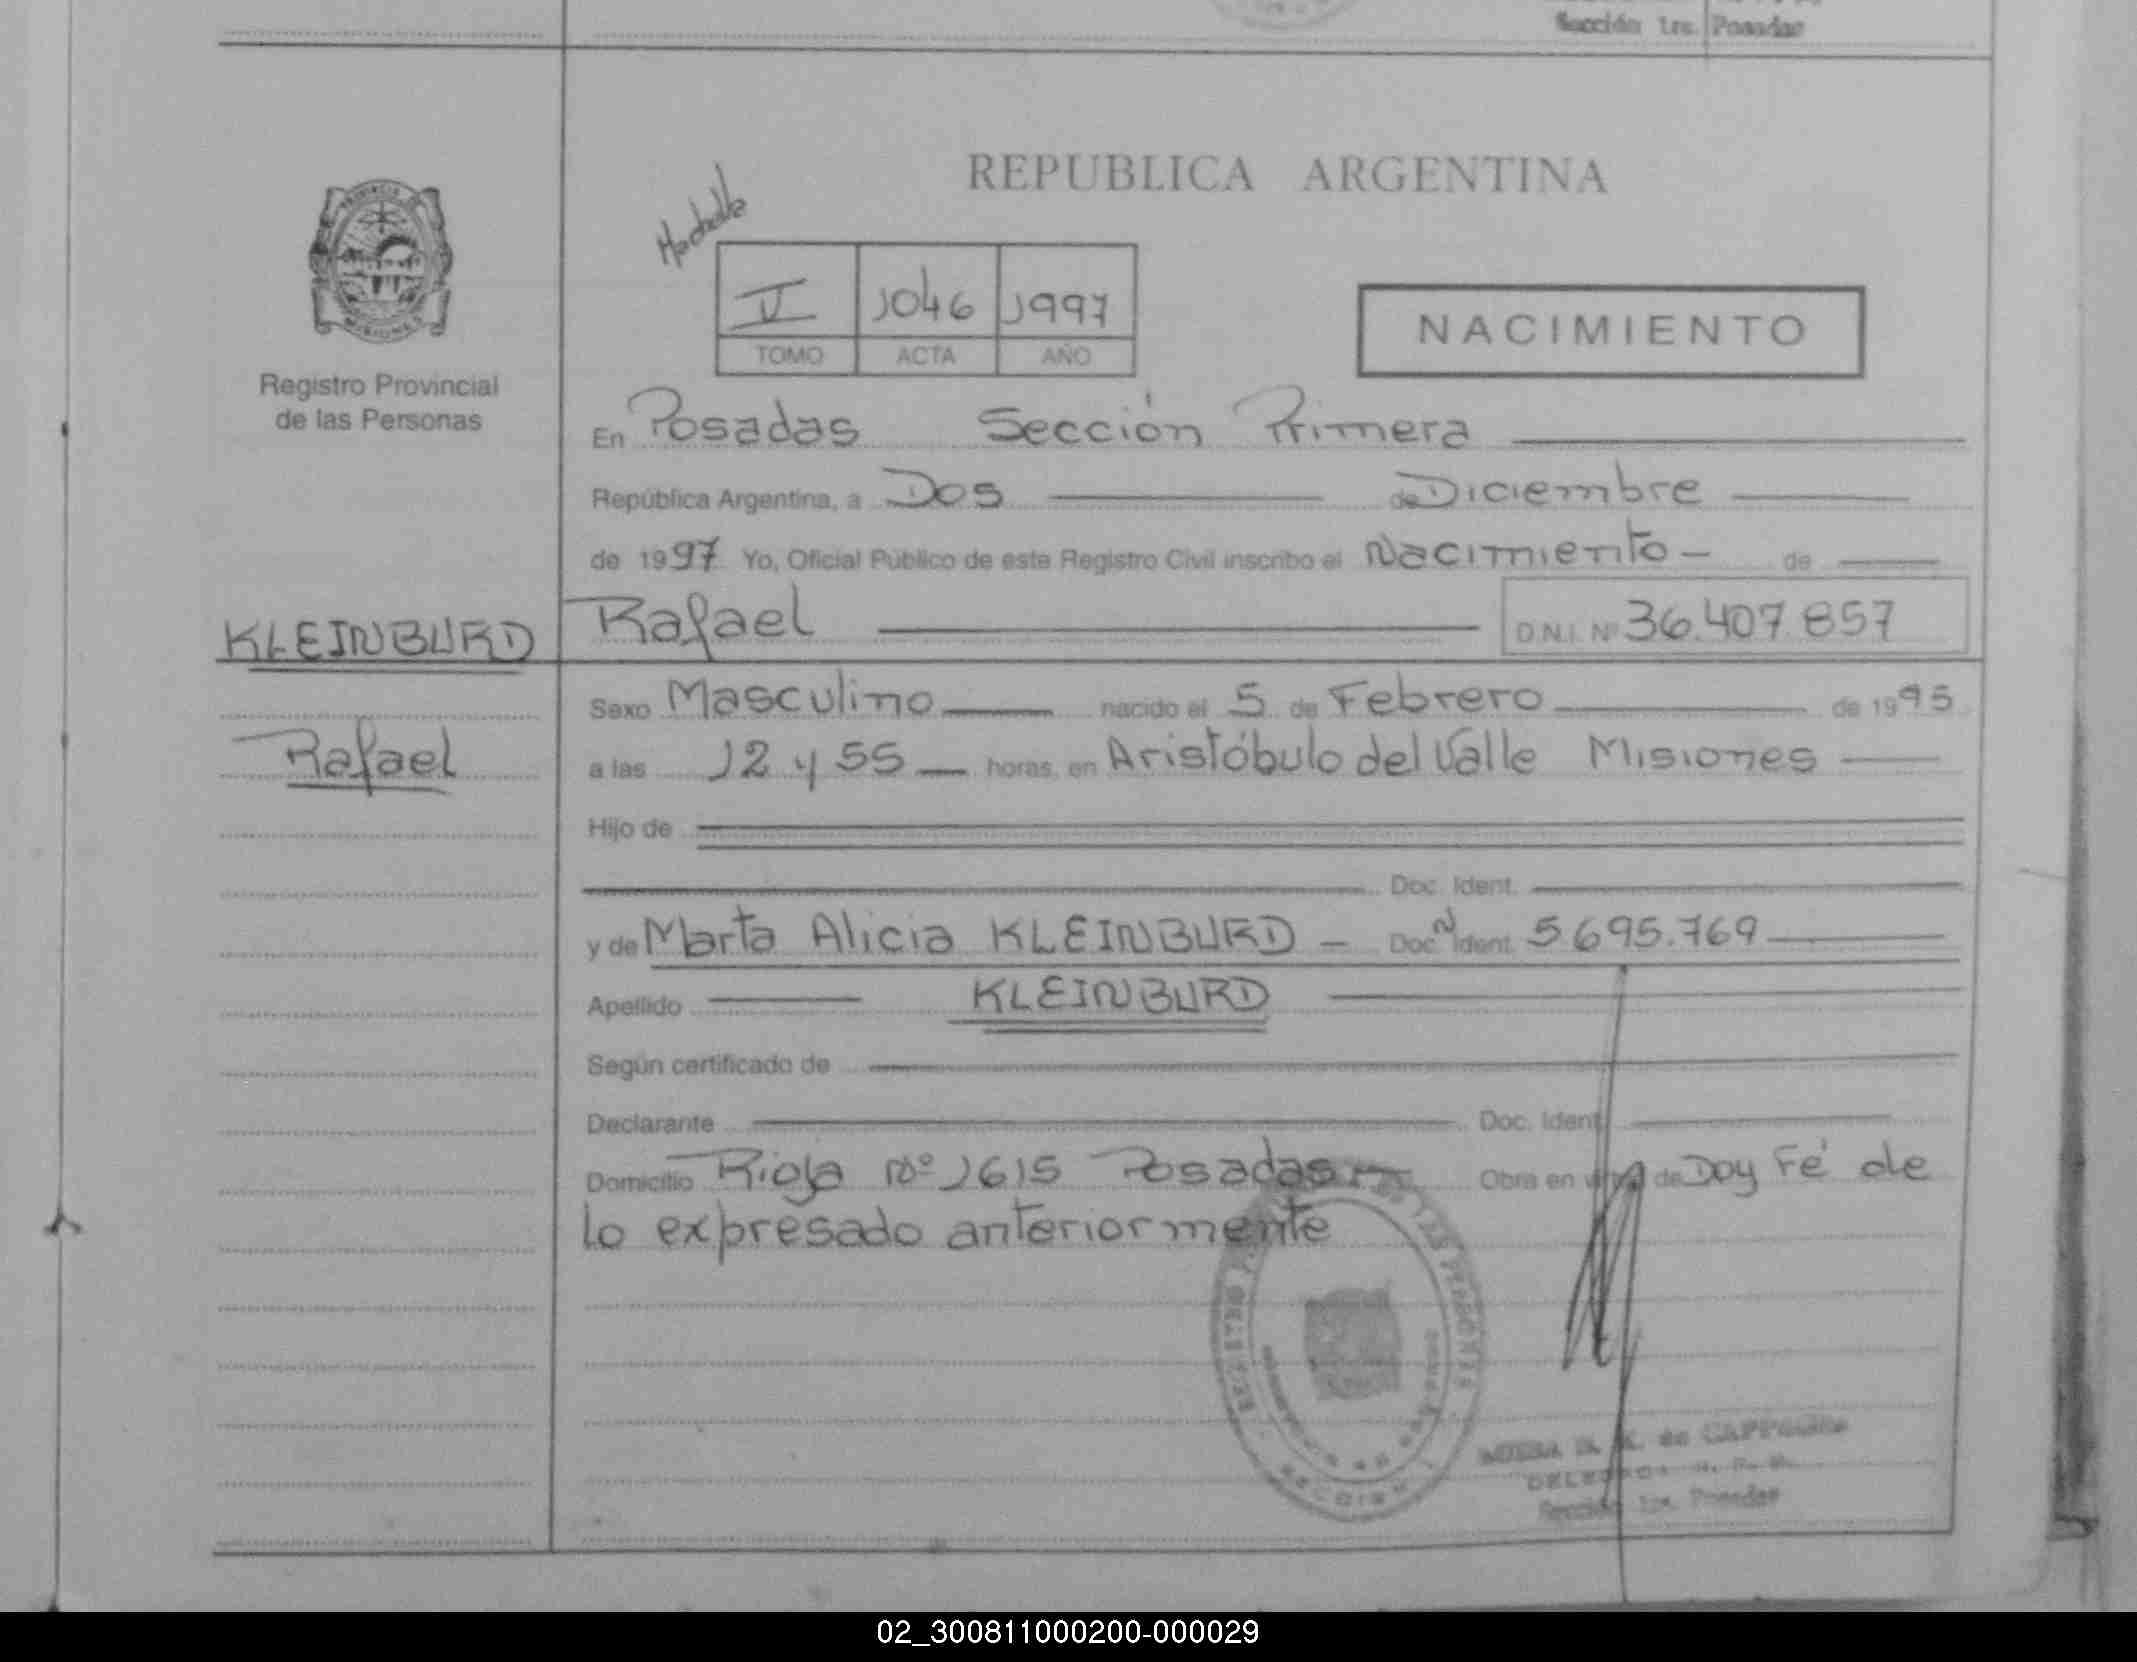 Sección 1ra. Posadas
REPUBLICA ARGENTINA
PROVINCIA DE
MISIONES
Registro Provincial
de las Personas
1046 1997
TOMO ACTA AÑO
NACIMIENTO
En Posadas Sección Primera
República Argentina, a Dos de Diciembre
de 1997 Yo, Oficial Público de este Registro Civil inscribo el Nacimiento de
KLEINBURD Rafael D.N.I. Nº 36.407.857
Sexo Masculino nacido el 5 de Febrero de 1995
Rafael
a las 12 y 55 horas, en Aristóbulo del Valle Misiones
Hijo de
Doc. Ident.
y de Marta Alicia KLEINBURD Doc. Ident. N 5695.769
Apellido KLEINBURD
Según certificado de
Declarante Doc. Ident.
Domicilio Rioja Nº 1615 Posadas Obra en de Doy Fé de
lo expresado anteriormente
Sección 1ra. Posadas
02_300811000200-000029